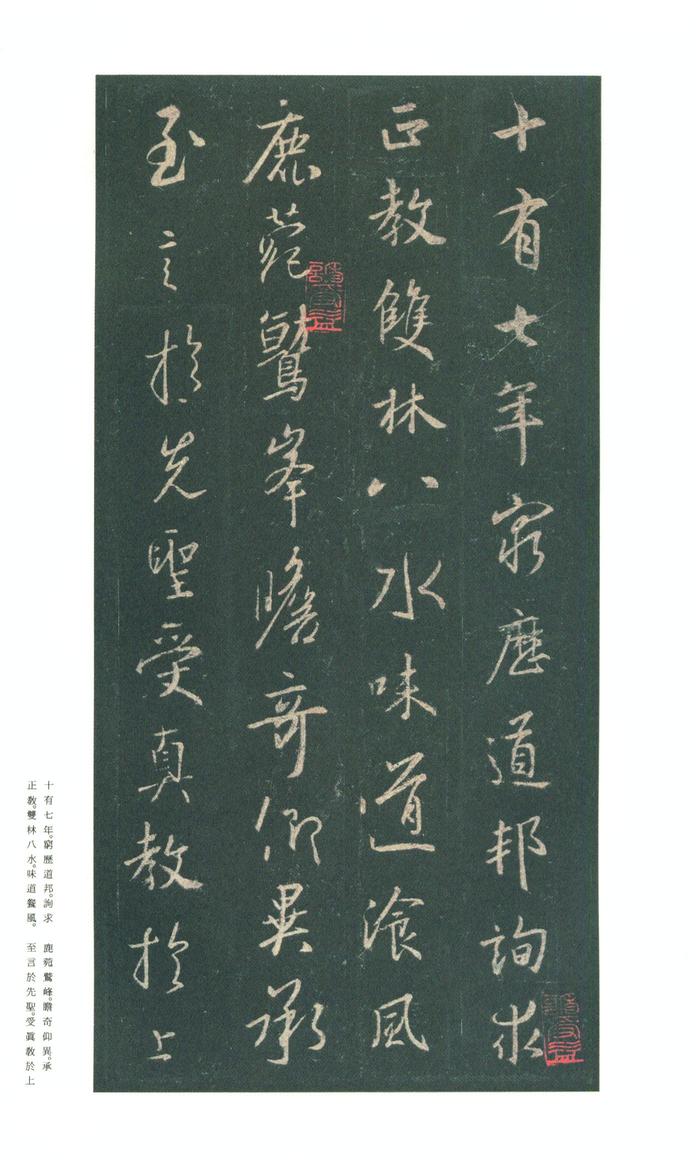 十有七年窮歷道邦詢求
正教雙林八水味道飡風
鹿菀鷲峯瞻奇仰異承
至言於先聖受真教於上
十有七年。窮歷道邦。詢求
正教。雙林八水。味道餐風。
鹿菀鷲峰。瞻奇仰異。承
至言於先聖。受眞教於上